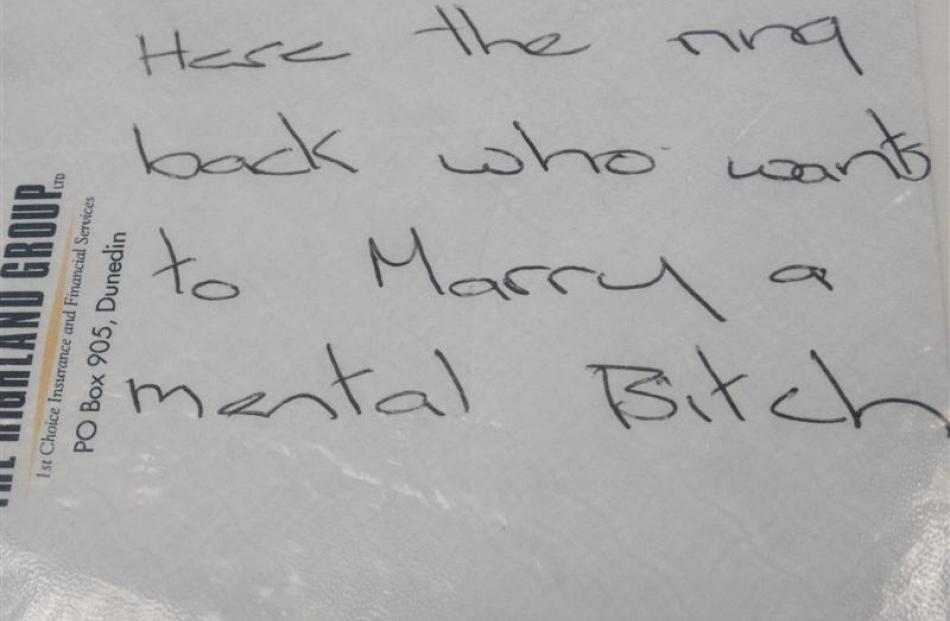 Here the ring
back who wants
to Marry a
mental Bitch
THE HIGHLAND GROUP LTD
1st Choice Insurance and Financial Services
PO Box 905, Dunedin